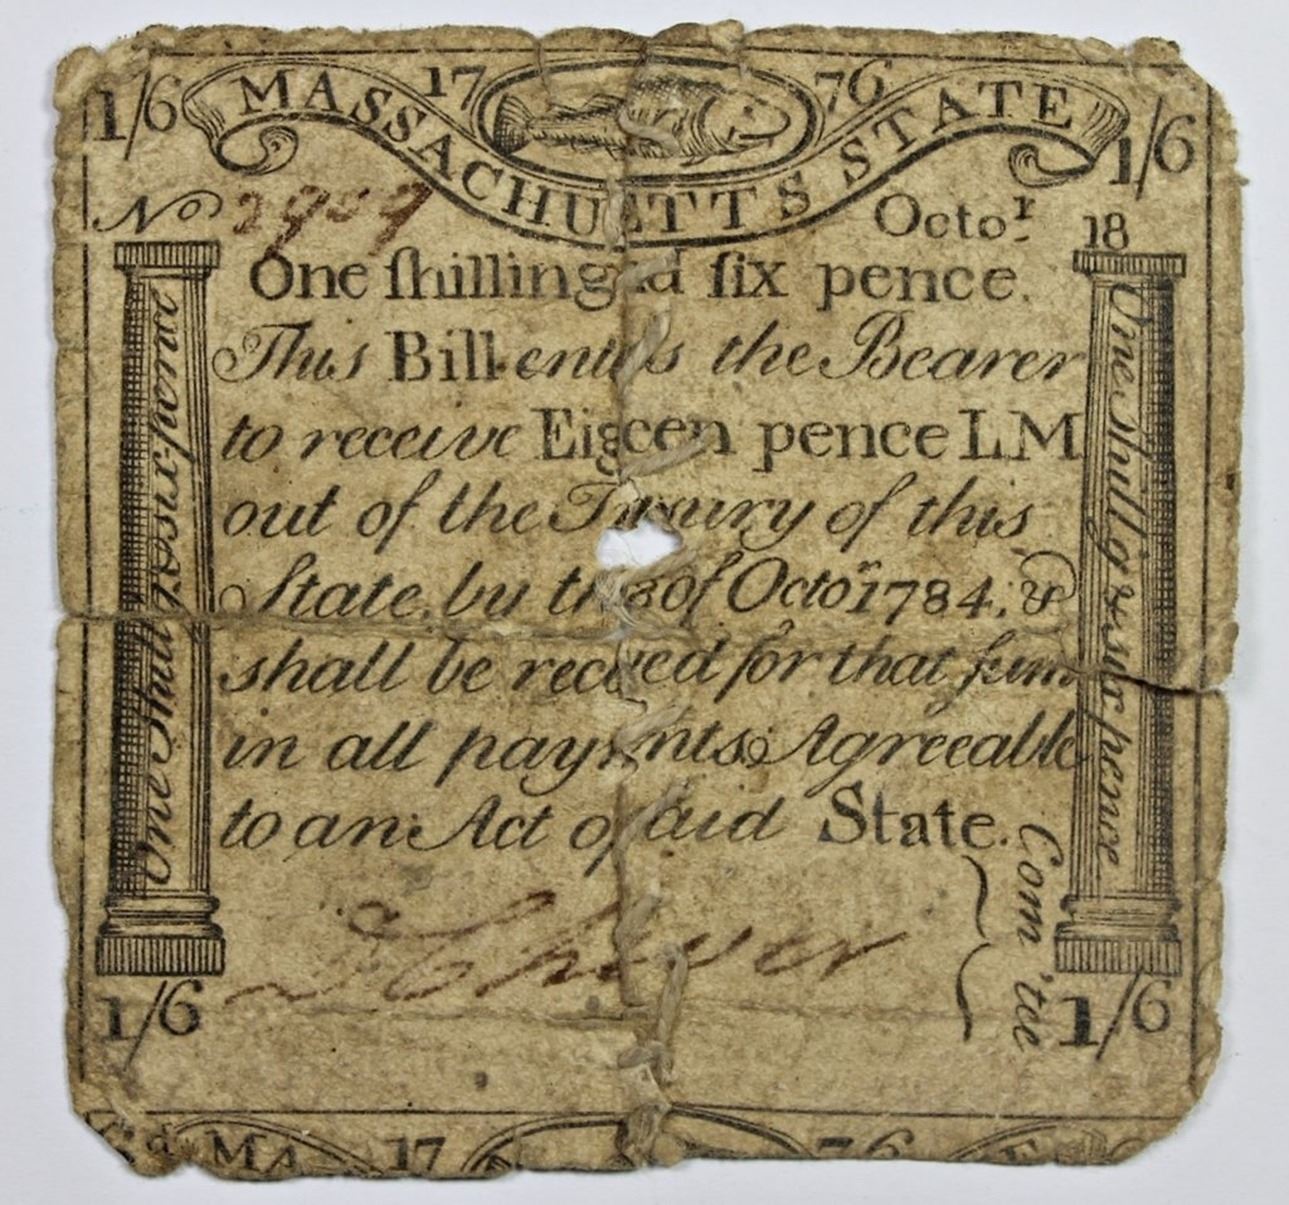 1/6 MASSACHUSETTS STATE 1/6
17 76
No 2909 Octo.r 18
One ſhilling d ſix pence.
This Bill entles the Bearer
to receive Eigeen pence LM
out of the Treaury of this
State, by th 8 of Octo.r 1784, &
shall be receved for that ſum
in all payments Agreeable
to an Act of ſaid State.
One Shillg & six-pence
One Shillg & six pence
Com'tee
1/6 1/6
MA 17 76 E